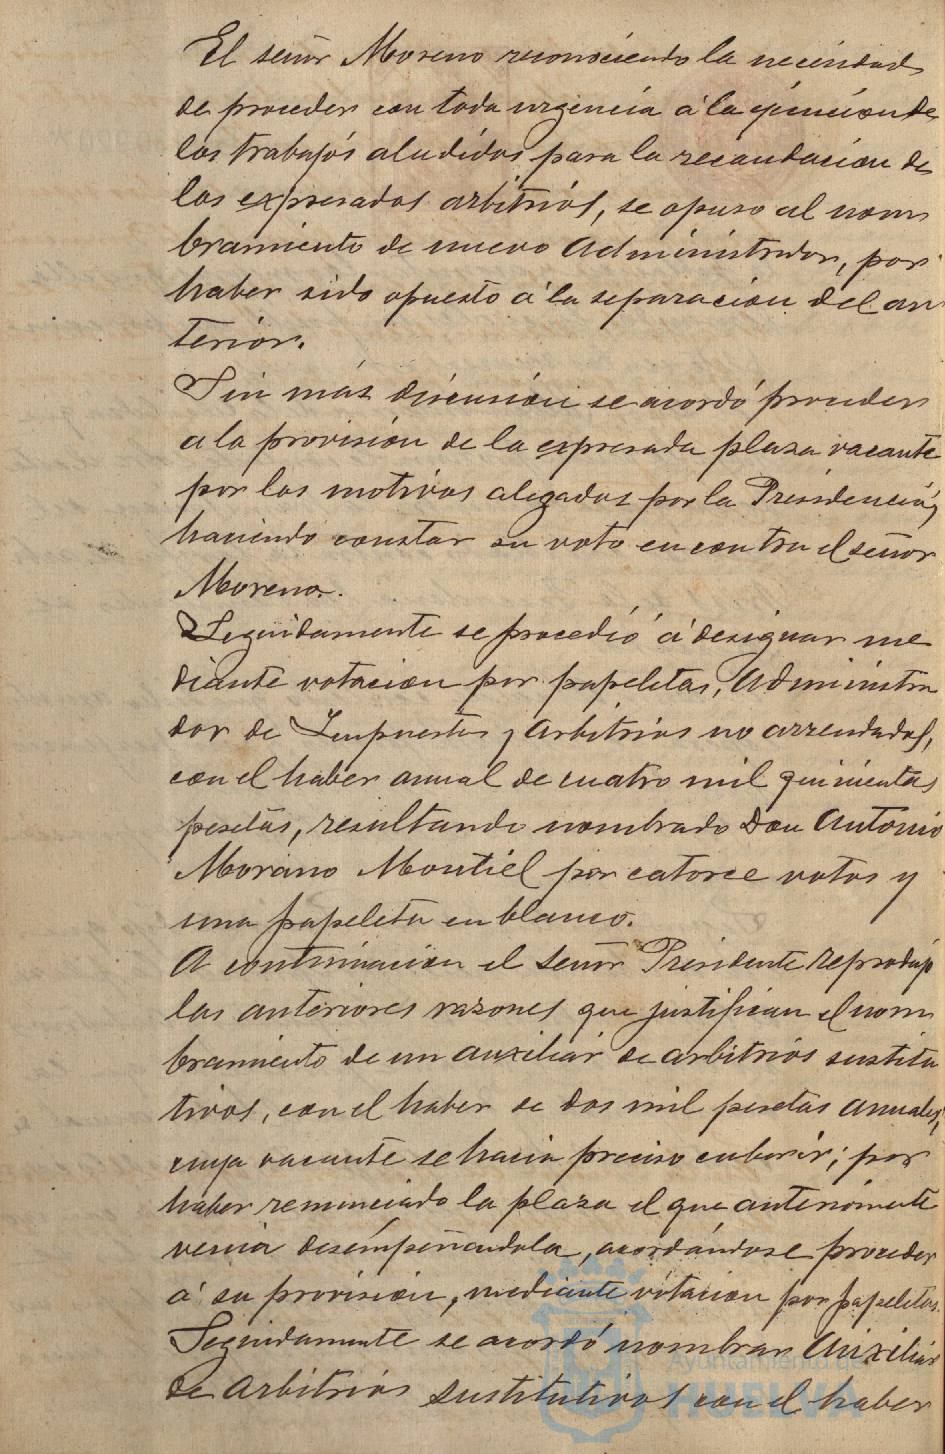 El señor Moreno reconociendo la necesidad
de proceder con toda urgencia á la ejecución de
los trabajos aludidos para la recaudacion de
los expresados arbitrios, se opuso al nom
bramiento de nuevo Administrador, por
haber sido opuesto á la separacion del an
terior.
Sin más discusión se acordó proceder
a la provisión de la expresada plaza vacante
por los motivos alegados por la Presidencia,
haciendo constar su voto en contra el señor
Moreno.
Seguidamente se procedió á designar me
diante votacion por papeletas, Administra
dor de Impuestos y Arbitrios no arrendados,
con el haber anual de cuatro mil quinientas
pesetas, resultando nombrado Don Antonio
Morano Montiel por catorce votos y
una papeleta en blanco.
A continuacion el señor Presidente reprodujo
las anteriores razones que justifican el nom
bramiento de un auxiliar de arbitrios sustitu
tivos, con el haber de dos mil pesetas anuales,
cuya vacante se hacia preciso cubrir; por
haber renunciado la plaza el que anteriormente
venia desempeñandola, acordándose proceder
á su provision, mediante votacion por papeletas.
Seguidamente se acordó nombrar Auxiliar
de Arbitrios sustitutivos con el haber
Ayuntamiento de
HUELVA